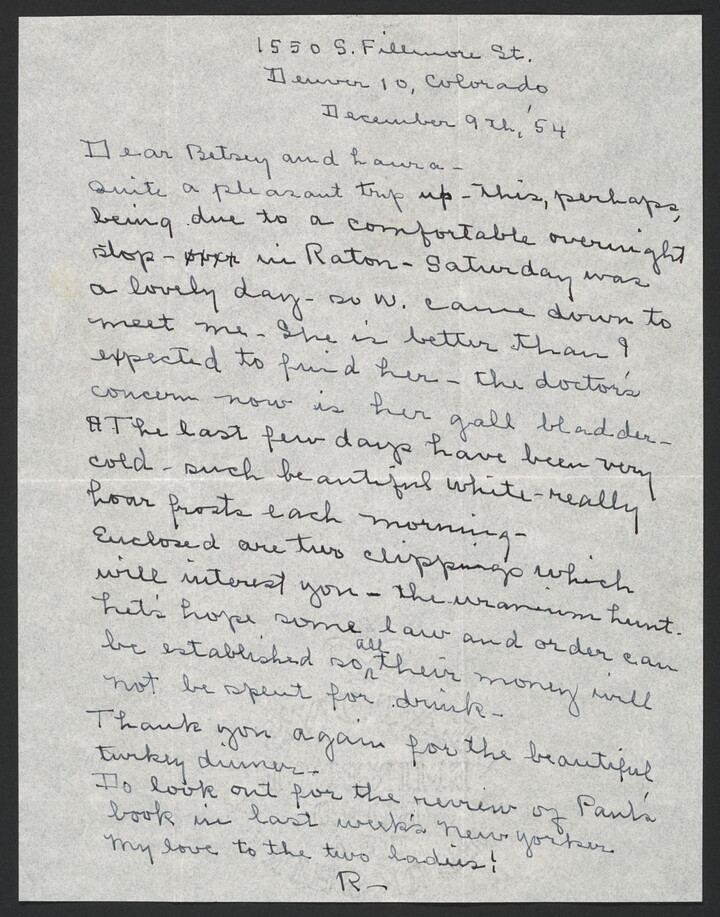 1550 S. Fillmore St.
Denver 10, Colorado
December 9th, '54
Dear Betsey and Laura -
Quite a pleasant trip up - This, perhaps,
being due to a comfortable overnight
stop - in Raton - Saturday was
a lovely day - so W. came down to
meet me - She is better than I
expected to find her - the doctor's
concern now is her gall bladder -
The last few days have been very
cold - such beautiful white - really
hoar frosts each morning -
Enclosed are two clippings which
will interest you - the uranium hunt.
Let's hope some law and order can
be established so all their money will
not be spent for drink -
Thank you again for the beautiful
turkey dinner -
Do look out for the review of Paul's
book in last week's New Yorker
My love to the two ladies!
R -